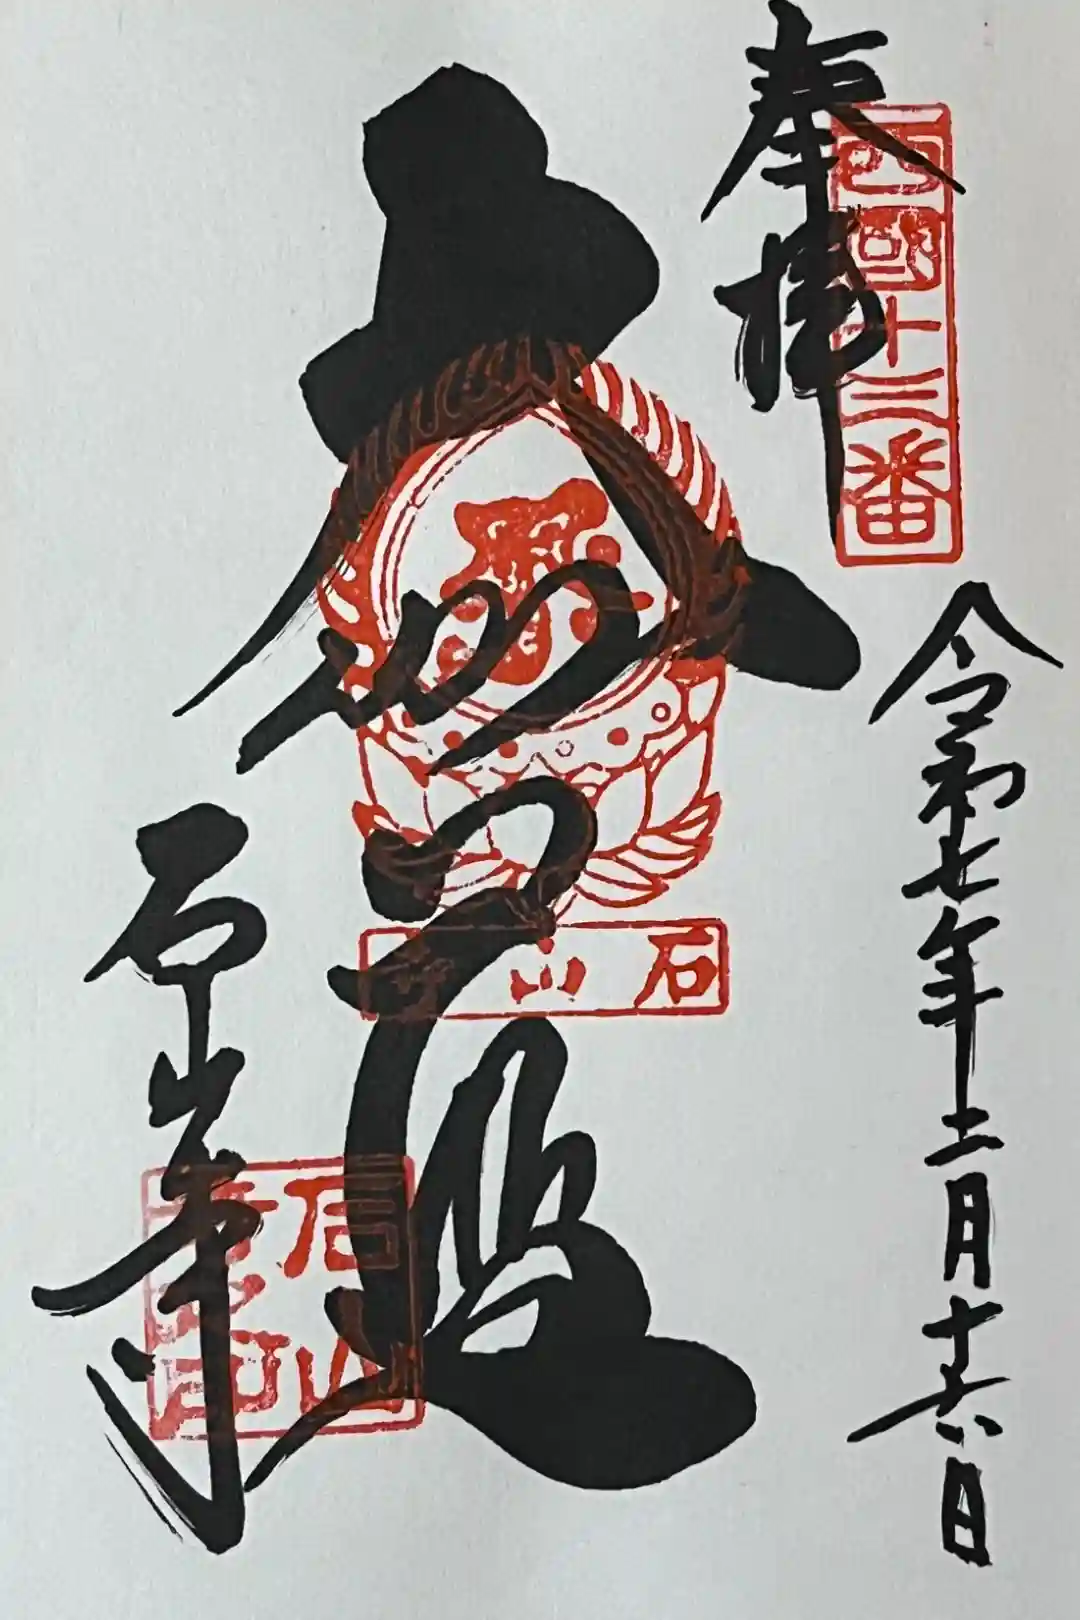 奉拝
西國十三番
令和七年十二月十六日
大伽藍
石山寺
石山寺
石山
寺之印